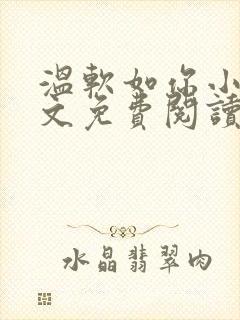 溫軟如你小
文免費閱讀
水晶翡翠肉